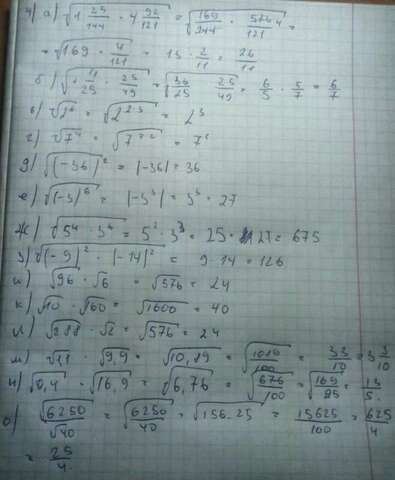 ч) а) √(1 25/144 · 4 92/121) = √(169/144 · 576/121) =
= √(169 · 4/121) = 13 · 2/11 = 26/11
б) √(1 11/25 · 25/49) = √(36/25 · 25/49) = 6/5 · 5/7 = 6/7
в) √2⁶ = √2^(2·3) = 2³
г) √7⁴ = √7^(2·2) = 7²
д) √(-36)² = |-36| = 36
е) √(-3)⁶ = |-3³| = 3³ = 27
ж) √(5⁴ · 3⁴) = 5² · 3³ = 25 · 27 = 675
з) √((-9)² · |-14|²) = 9 · 14 = 126
и) √96 · √6 = √576 = 24
к) √10 · √160 = √1600 = 40
л) √288 · √2 = √576 = 24
м) √1,1 · √9,9 = √10,89 = √(1089/100) = 33/10 = 3 3/10
н) √0,4 · √16,9 = √6,76 = √(676/100) = √(169/25) = 13/5.
о) √6250/√40 = √(6250/40) = √156.25 = √(15625/100) = √(625/4)
= 25/4.